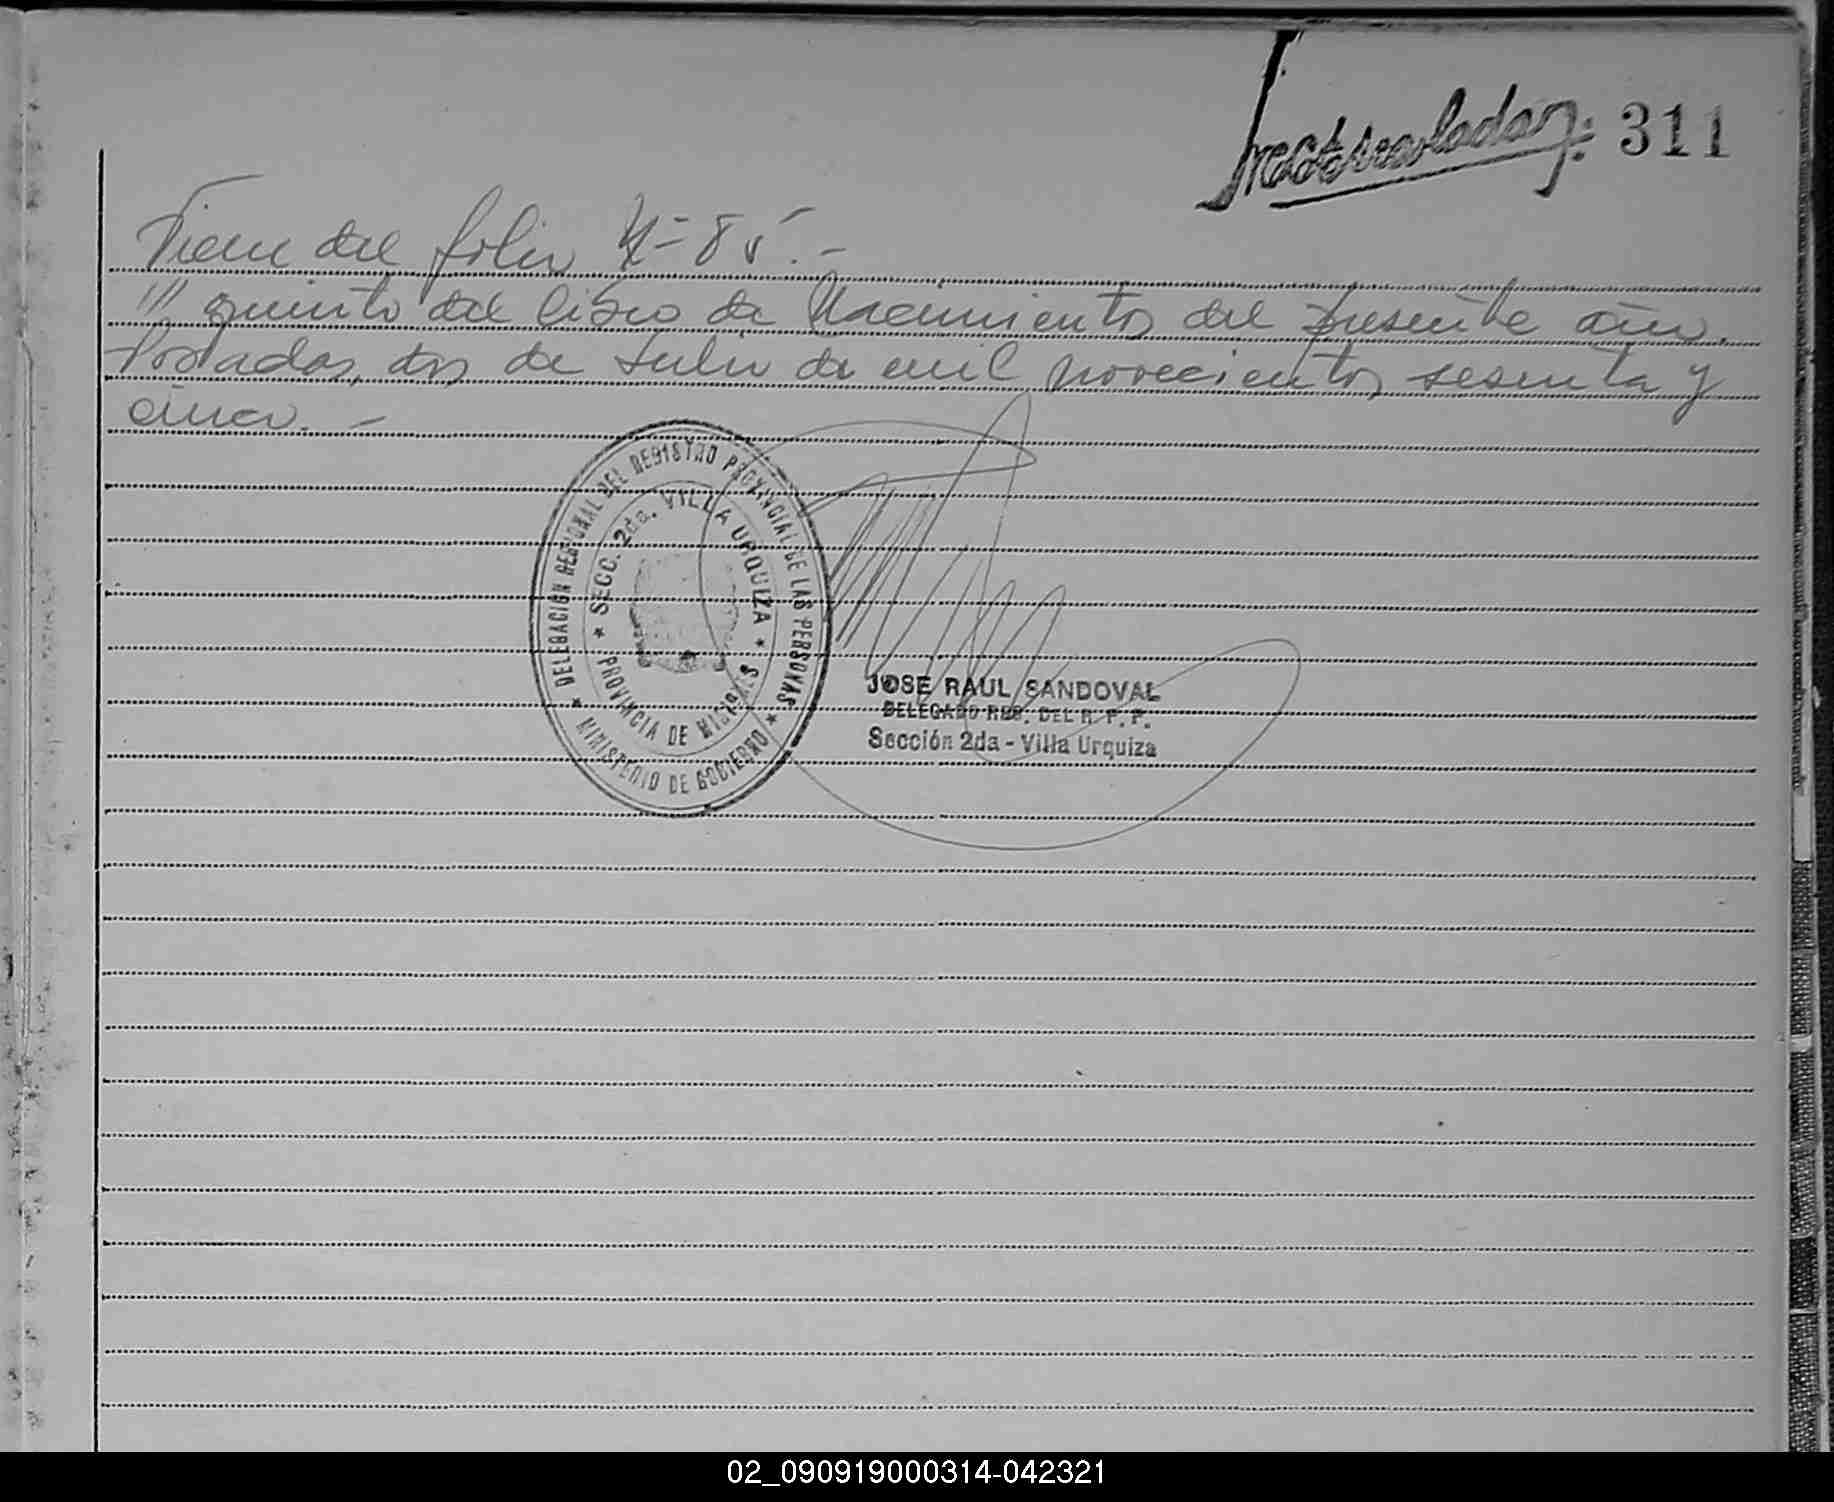 311
Viene del folio Nº 85.-
/// quinto del libro de Nacimientos del presente año.
Posadas, dos de Julio de mil novecientos sesenta y
cinco.-
DELEGACION REGIONAL DEL REGISTRO PROVINCIAL DE LAS PERSONAS
* MINISTERIO DE GOBIERNO *
* SECC. 2da. VILLA URQUIZA *
PROVINCIA DE MISIONES
JOSE RAUL SANDOVAL
DELEGADO REG. DEL R. P. P.
Sección 2da - Villa Urquiza
02_090919000314-042321